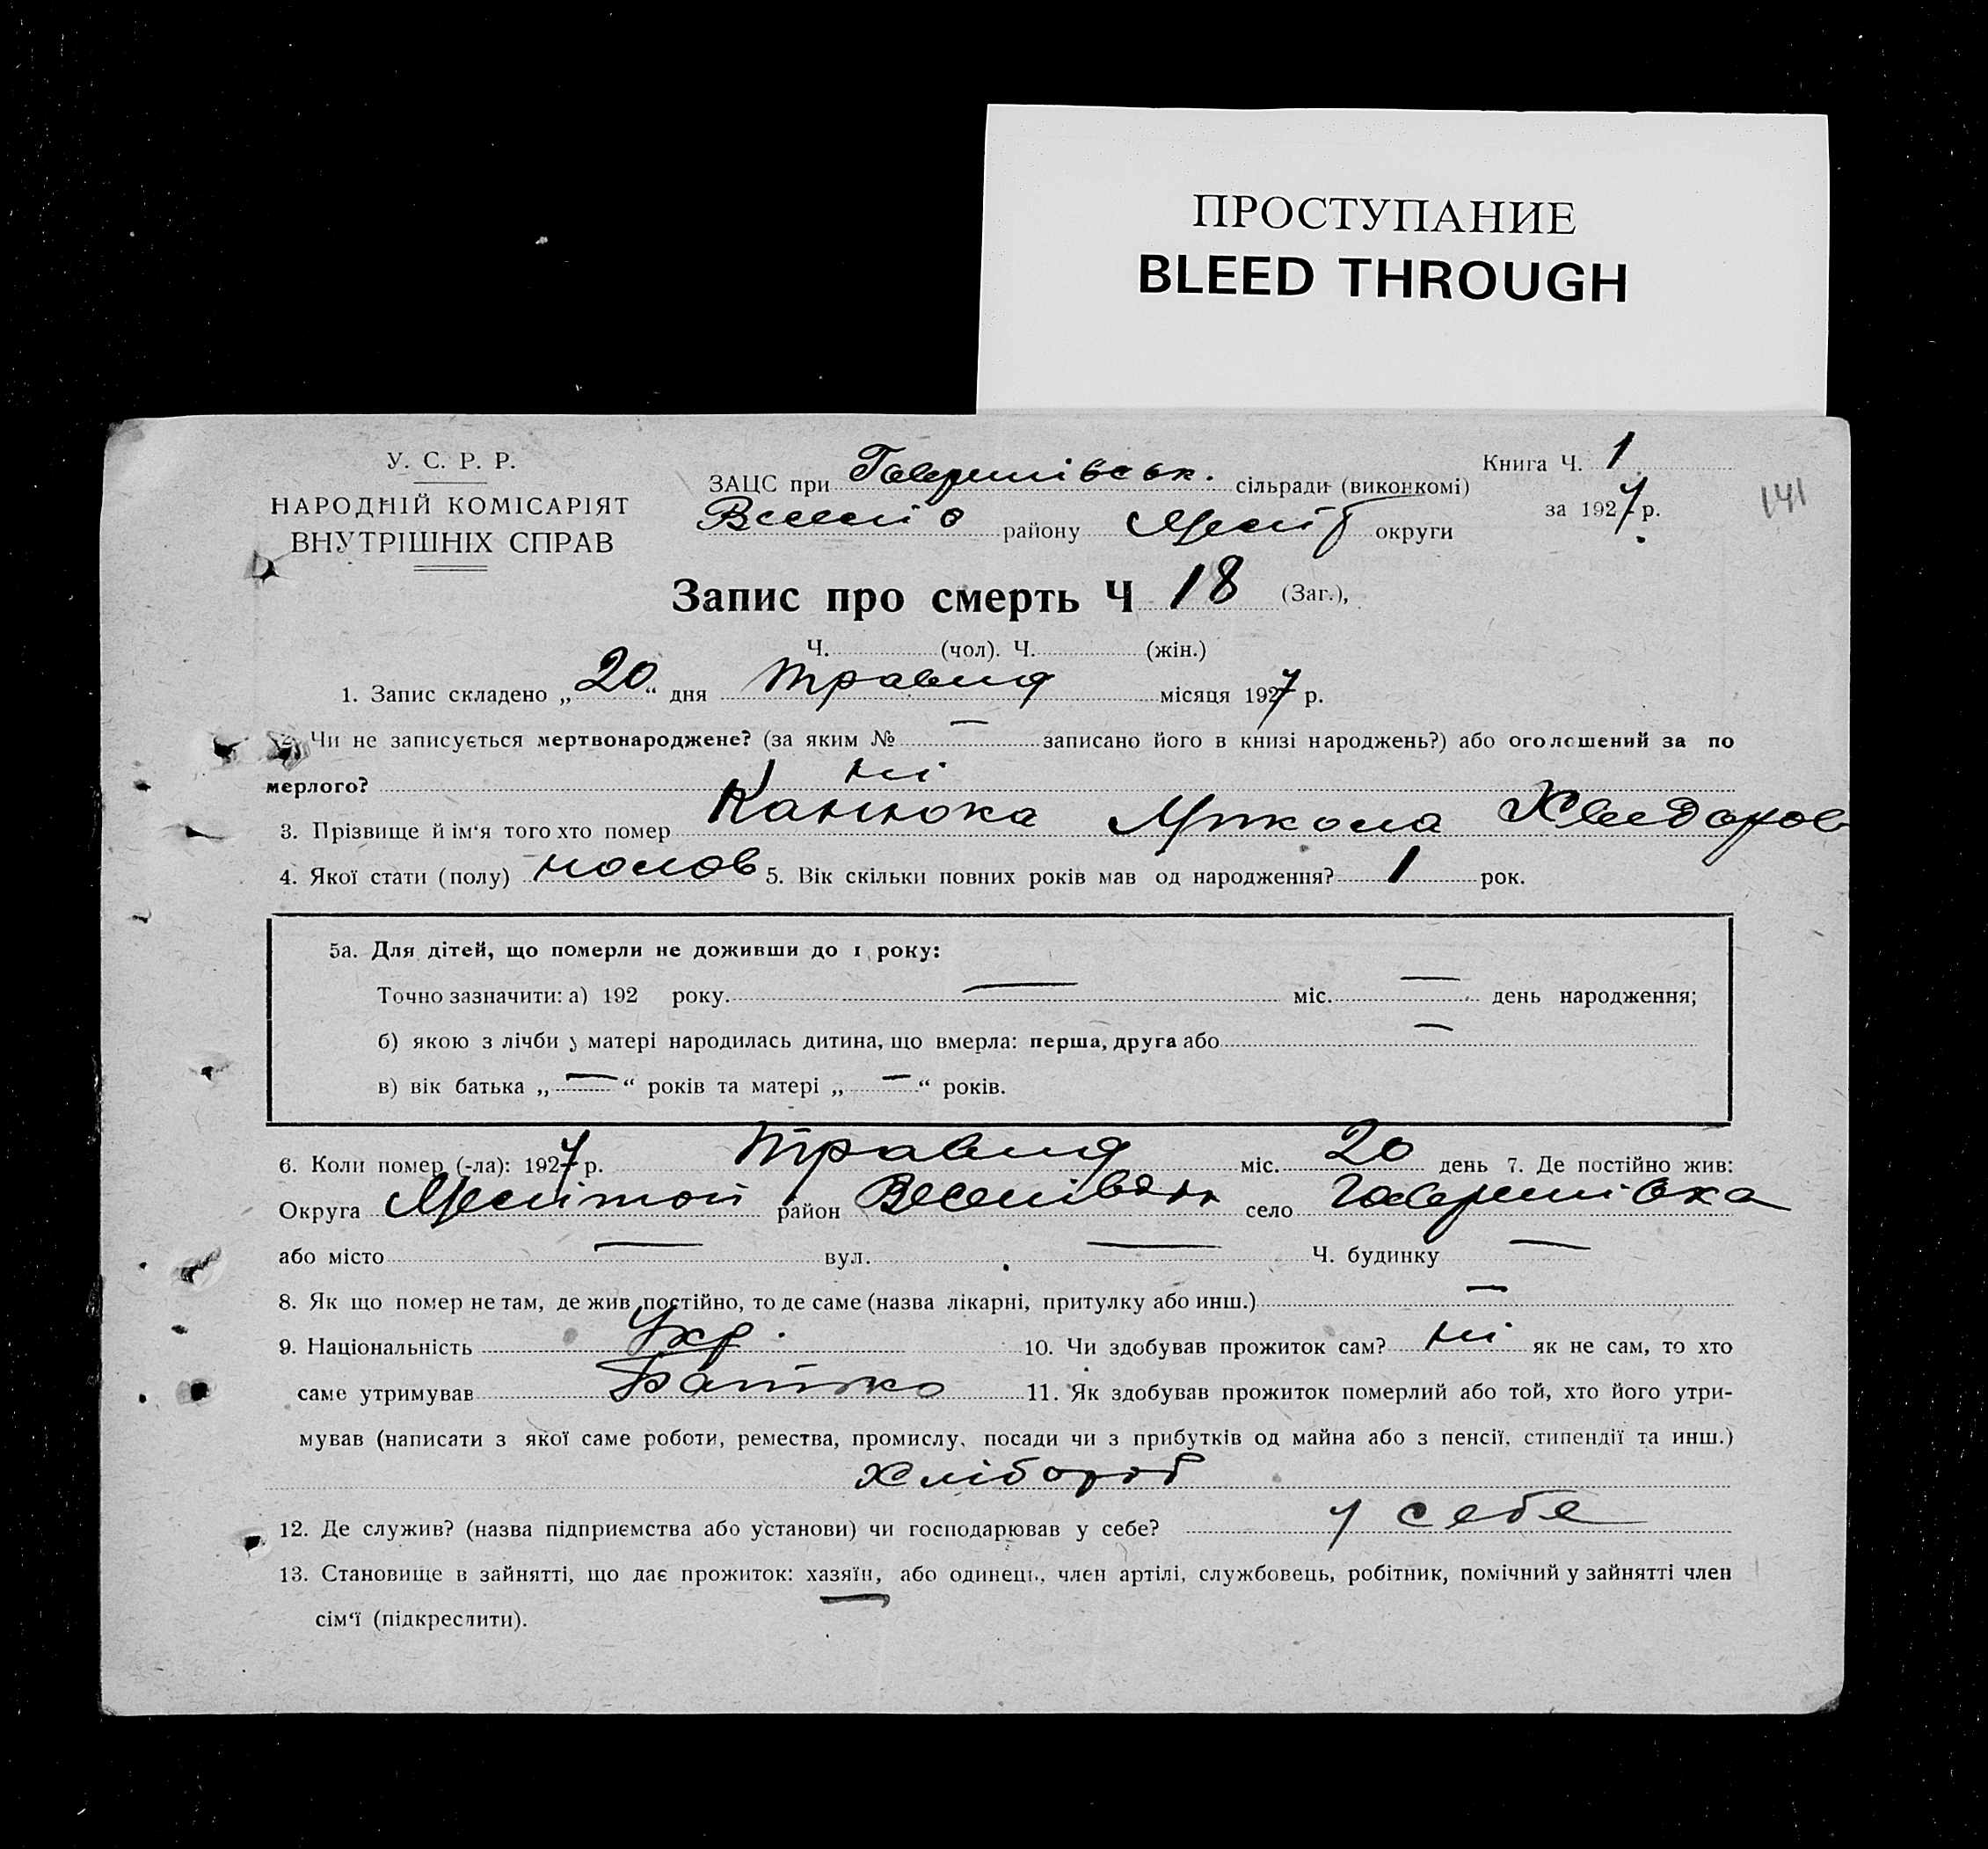 ПРОСТУПАНИЕ
BLEED THROUGH
У. С. Р. Р.
НАРОДНІЙ КОМІСАРІЯТ
ВНУТРІШНІХ СПРАВ
ЗАЦС при Гаврилівськ. сільради (виконкомі)
району округи
Книга Ч. 1
за 1927 р.
141
Запис про смерть Ч 18 (Заг.),
Ч. (чол). Ч. (жін.)
1. Запис складено „20“ дня травня місяця 1927 р.
Чи не записується мертвонароджене? (за яким № — записано його в книзі народжень?) або оголошений за по
мерлого? ні
3. Прізвище й ім‘я того хто помер Канюка Микола Хведоров
4. Якої стати (полу) чолов 5. Вік скільки повних років мав од народження? 1 рок.
5а. Для дітей, що померли не доживши до 1 року:
Точно зазначити: а) 192 року. — міс. — день народження;
б) якою з лічби у матері народилась дитина, що вмерла: перша, друга або —
в) вік батька „—“ років та матері „—“ років.
6. Коли помер (-ла): 1927 р. травня міс. 20 день 7. Де постійно жив:
Округа Мелітоп район село Гаврилівка
або місто — вул. — Ч. будинку —
8. Як що помер не там, де жив постійно, то де саме (назва лікарні, притулку або инш.) —
9. Національність Укр. 10. Чи здобував прожиток сам? ні як не сам, то хто
саме утримував Батько 11. Як здобував прожиток померлий або той, хто його утри-
мував (написати з якої саме роботи, ремества, промислу, посади чи з прибутків од майна або з пенсії, стипендії та инш.)
Хлібороб
12. Де служив? (назва підприємства або установи) чи господарював у себе? у себе
13. Становище в зайнятті, що дає прожиток: хазяїн, або одинець, член артілі, службовець, робітник, помічний у зайнятті член
сім‘ї (підкреслити).